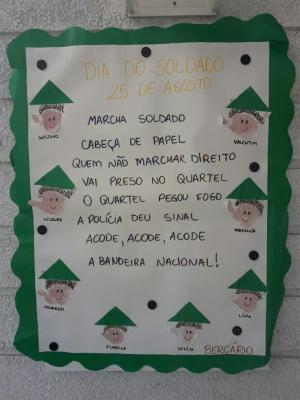 DIA DO SOLDADO
25 DE AGOSTO
MARCHA SOLDADO
CABEÇA DE PAPEL
QUEM NÃO MARCHAR DIREITO
VAI PRESO NO QUARTEL
O QUARTEL PEGOU FOGO
A POLÍCIA DEU SINAL
ACODE, ACODE, ACODE
A BANDEIRA NACIONAL!
VALENTIM
NICOLAS
EDUARDO
LÍVIA
ISABELLA
CECÍLIA
BERÇÁRIO